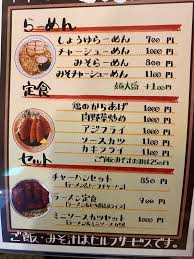 らーめん
しょうゆらーめん 700円
チャーシューめん 1000円
みそらーめん 800円
みそチャーシューめん 1100円
麺大盛 +100円
定食
鶏のからあげ 1000円
肉野菜炒め 1000円
アジフライ 1000円
ソースカツ 1100円
カキフライ 1100円
セット
チャーハンセット 850円
(ラーメン&
ラーメン定食 900円
ミニソースカツセット 1000円
ご飯・みそ汁はセルフサービスです。